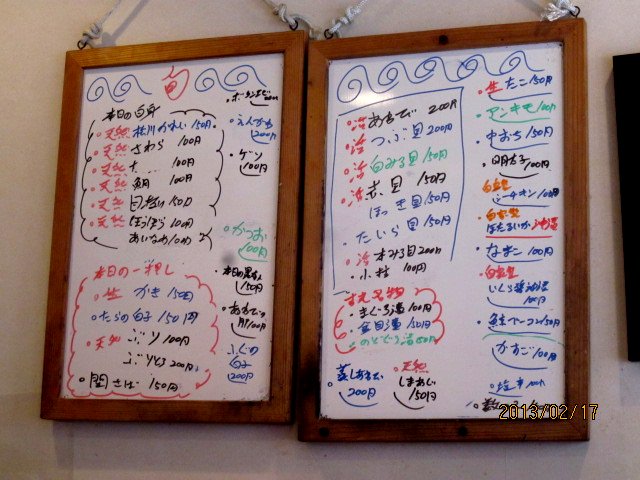 旬
本日の白身
・天然 松川かれい 150円
・天然 さわら 100円
・天然 100円
・天然 鯛 100円
・天然 150円
・天然 ほうぼう 100円
あいなめ 100円
本日の一押し
・生 かき 150円
・たらの白子 150円
・天然 ぶり 100円
ぶりとろ 200円
・関さば 150円
・えんがわ 200円
・ゲソ 100円
・かつお 100円
150円
100円
ふぐの白子 200円
・活 あわび 200円
・活 つぶ貝 200円
・活 白みる貝 150円
・活 赤貝 150円
ほっき貝 150円
・たいら貝 150円
・活 本みる貝 200円
・小柱 100円
すし久名物
・まぐろ漬 100円
・金目漬 150円
・のどぐろ漬 150円
蒸しあわび 200円
・天然 しまあじ 150円
・生たこ 150円
・アンキモ 100円
・中おち 150円
・明太子 100円
自家製
・シーチキン 100円
・自家製
ほたるいか沖漬
・なまこ 100円
・自家製
いくら醤油漬 100円
・鮭ベーコン 150円
かすご 100円
2013/02/17